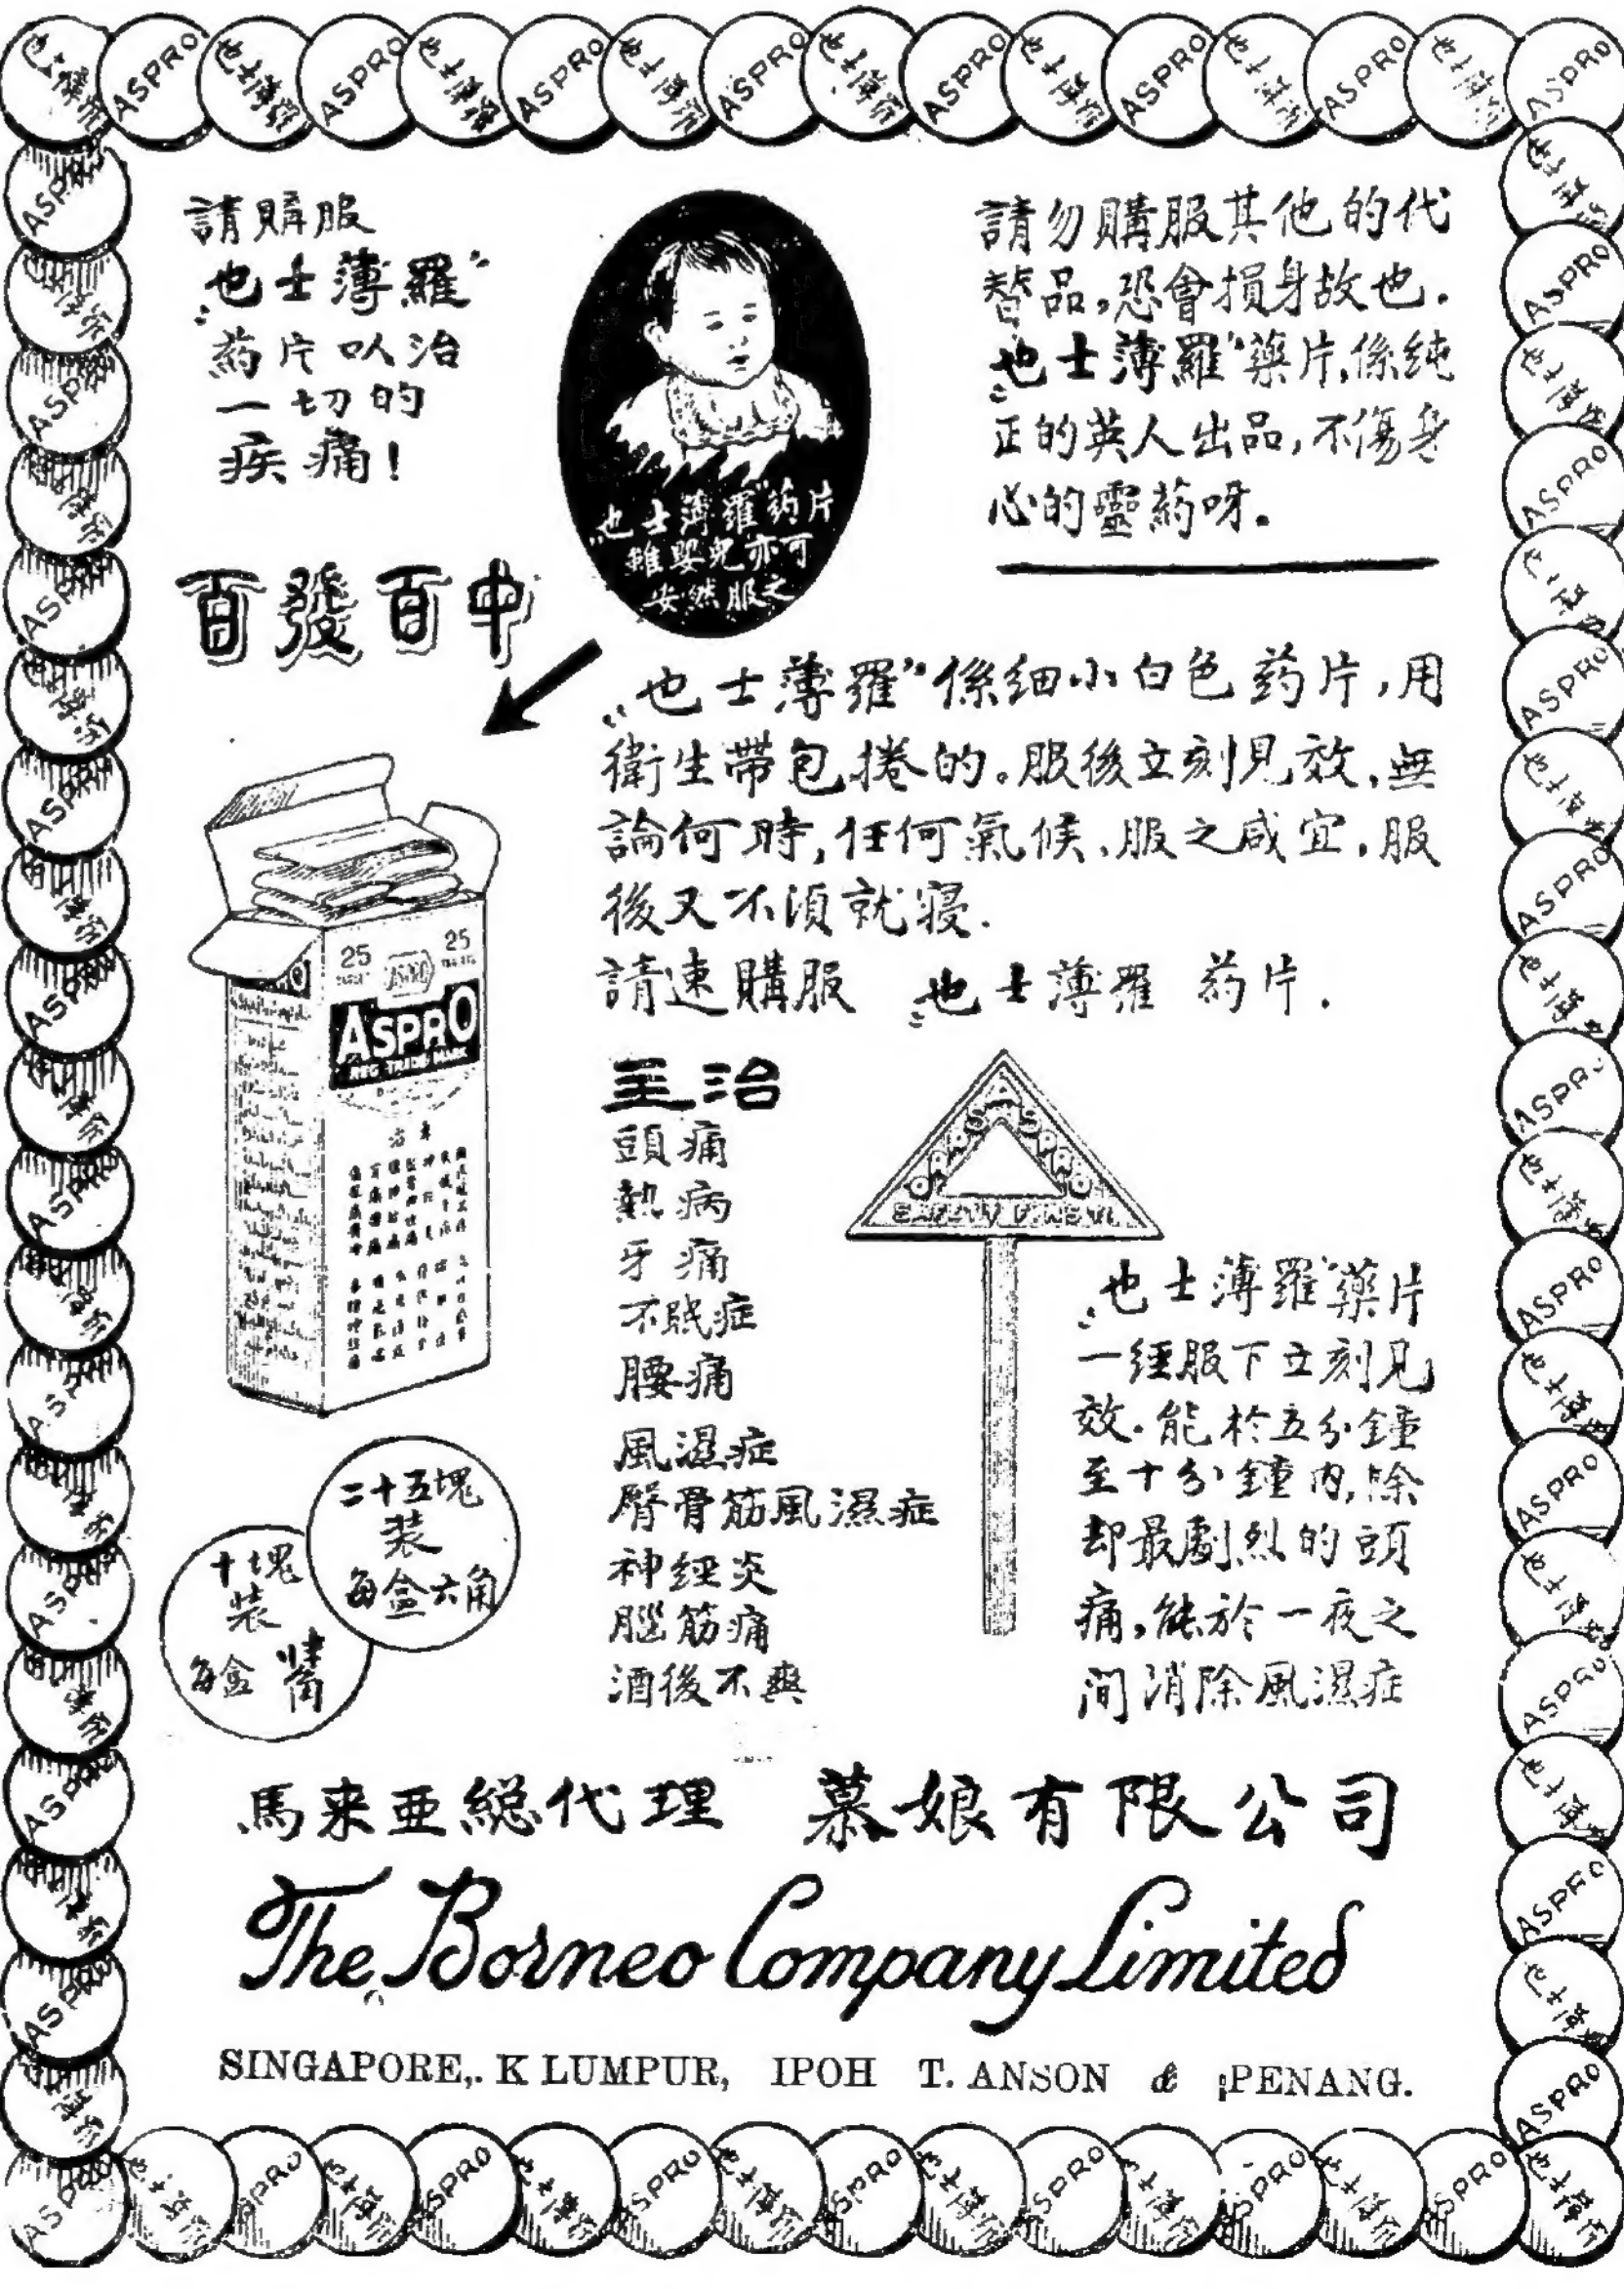 請購服
"也士薄羅"
葯片以治
一切的
疾痛!
百發百中
"也士薄羅"葯片
雖嬰兒亦可
安然服之
請勿購服其他的代
替品,恐會損身故也.
"也士薄羅"藥片,係純
正的英人出品,不傷身
心的靈葯呀。
"也士薄羅"係細小白色葯片,用
衛生帶包捲的。服後立刻見效,無
論何時,任何氣候,服之咸宜,服
後又不須就寢.
請速購服 "也士薄羅 葯片.
25 25
ASPRO
REG TRADE MARK
主治
頭痛
熱病
牙痛
不眠症
腰痛
風濕症
臀骨筋風濕症
神經炎
腦筋痛
酒後不爽
"也士薄羅"藥片
一經服下立刻見
效.能於五分鐘
至十分鐘內,除
却最劇烈的頭
痛,能於一夜之
间消除風濕症
二十五塊
装
每盒六角
十塊
装
每盒
馬来亚総代理 慕娘有限公司
The Borneo Company Limited
SINGAPORE,. K LUMPUR, IPOH T. ANSON & PENANG.